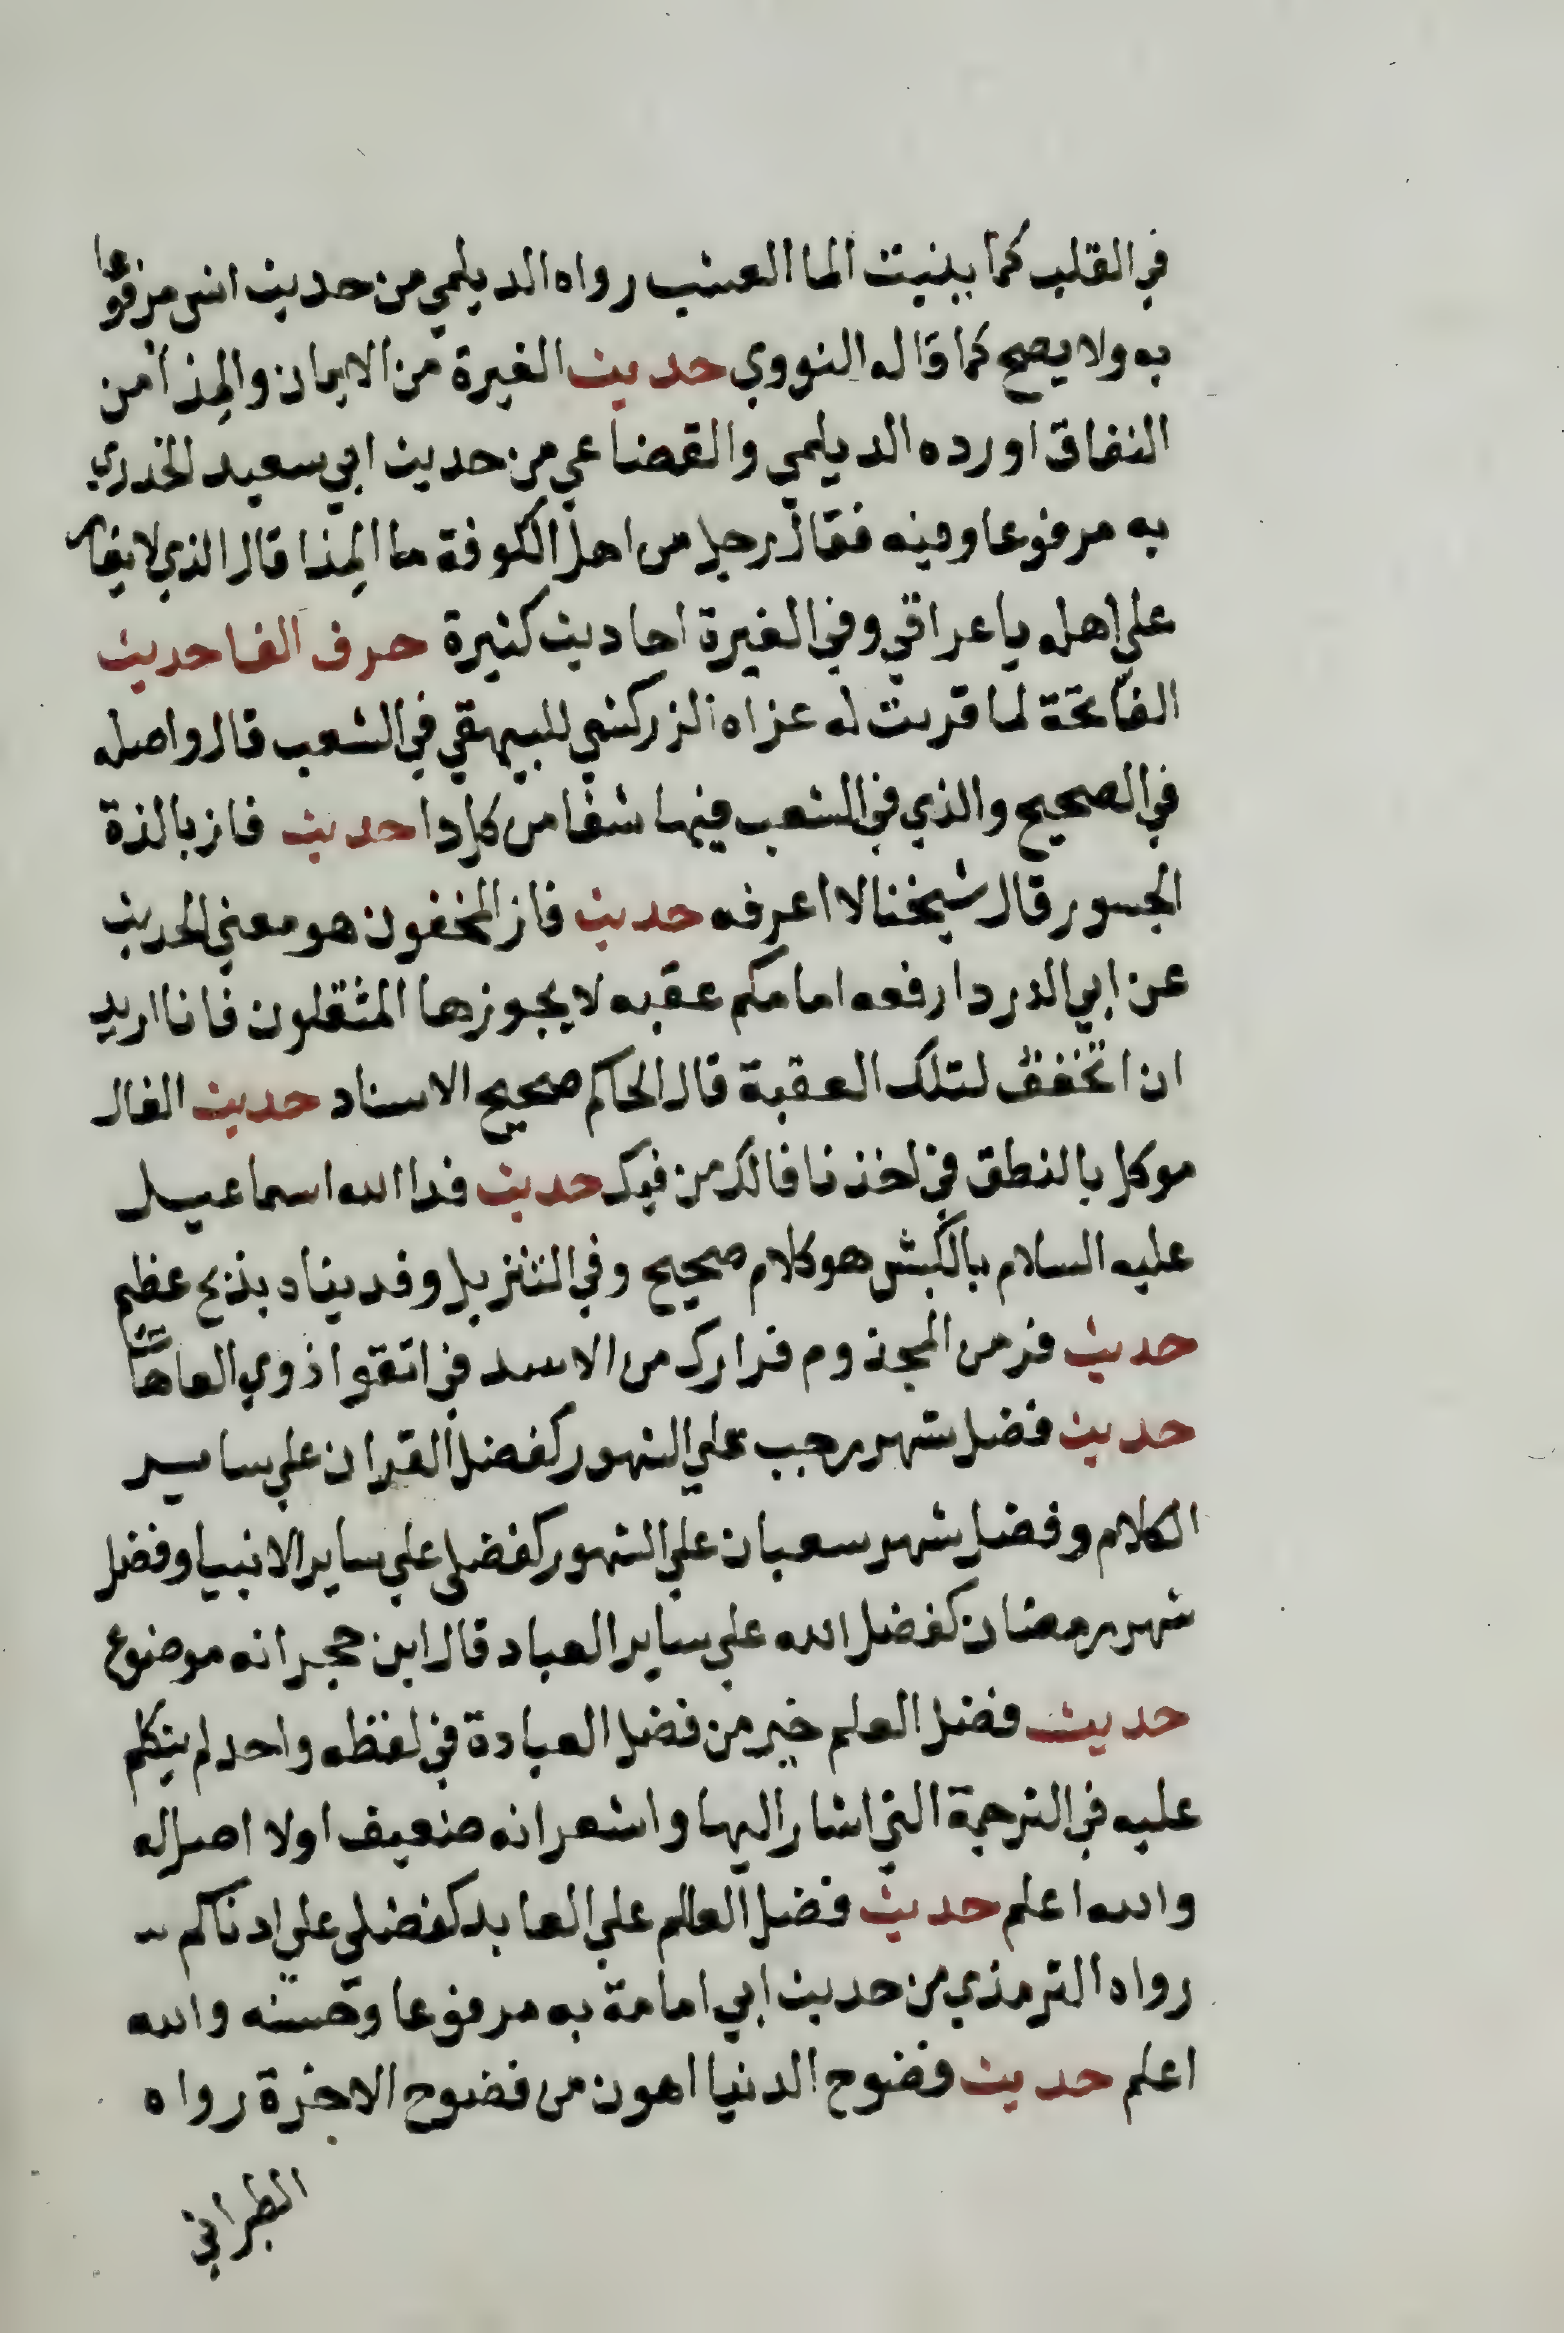 في القلب كما ينبت الما العشب رواه الديلمي من حديث انس مرفوعا
به ولا يصح كما قاله النووي حديث الغيرة من الايمان والمذا من
النفاق اورده الديلمي والقضاعي من حديث ابي سعيد الخدري
به مرفوعا وفيه فقال رجل من اهل الكوفة ما المذا قال الذي لا يغار
علي اهله يا عراقي وفي الغيرة احاديث كثيرة حرف الفا حديث
الفاتحة لما قريت له عزاه الزركشي للبيهقي في الشعب قال واصله
في الصحيح والذي في الشعب فيها شفا من كل دا حديث فاز بالذة
الجسور قال شيخنا لا اعرفه حديث فاز المخفون هو معني الحديث
عن ابي الدردا رفعه امامكم عقبه لا يجوزها المثقلون فانا اريد
ان اتخفف لتلك العقبة قال الحاكم صحيح الاسناد حديث الفال
موكل بالنطق في اخذنا فالك من فيك حديث فدا الله اسماعيل
عليه السلام بالكبش هو كلام صحيح وفي التنزيل وفديناه بذبح عظيم
حديث فر من المجذوم فرارك من الاسد في اتقوا ذوي العاهات
حديث فضل شهر رجب علي الشهور كفضل القران علي ساير
الكلام وفضل شهر سعبان علي الشهور كفضلي علي ساير الانبيا وفضل
شهر رمضان كفضل الله علي ساير العباد قال ابن حجر انه موضوع
حديث فضل العلم خير من فضل العبادة في لفظه واحد لم يتكلم
عليه في الترجمة التي اشار اليها واشعر انه ضعيف اولا اصل له
والله اعلم حديث فضل العالم علي العابد كفضلي علي ادناكم
رواه الترمذي من حديث ابي امامة به مرفوعا وحسنه والله
اعلم حديث فضوح الدنيا اهون من فضوح الاخرة رواه
الطبراني